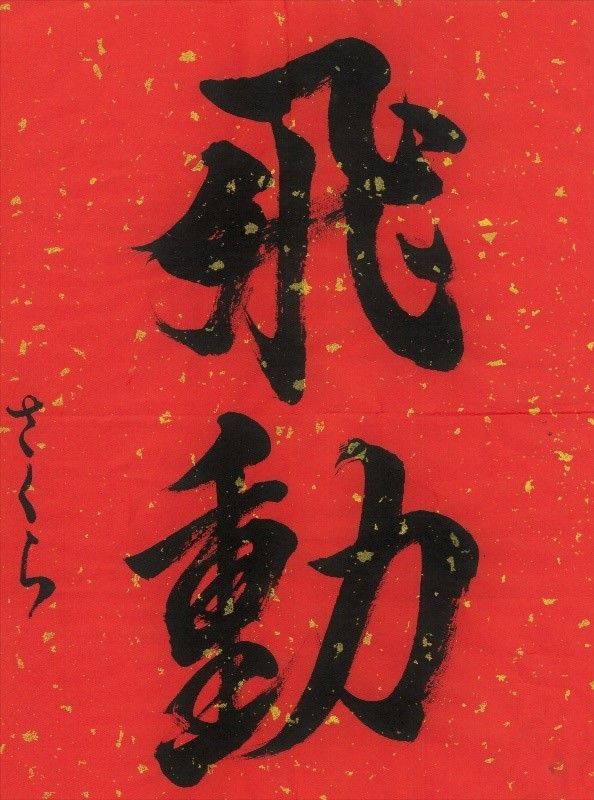 飛動
さくら